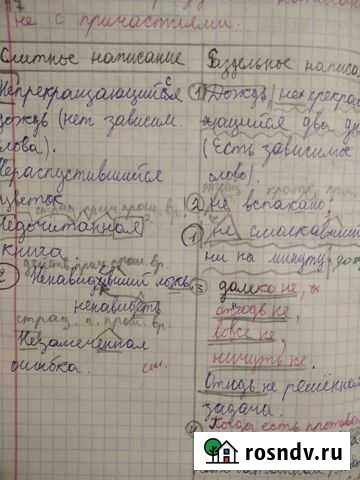 не с причастиями.
Слитное написание
Непрекращающийся
дождь (нет зависим.
слова).
Нераспустившийся
цветок
страд. прич. прош. вр.
Недочитанная
книга
2 Ненавидивший ложь
ненавидеть
страд. п. прош. вр.
Незамеченная
ошибка.
Раздельное написа
1 Дождь, не прекра
щающийся два дн
(Есть зависимое
слово).
2 не вспахано
1 не смолкавший
ни на минуту
3 далеко не,
отнюдь не,
вовсе не,
ничуть не.
Отнюдь не решённая
задача.
Когда есть противо
rosndv.ru